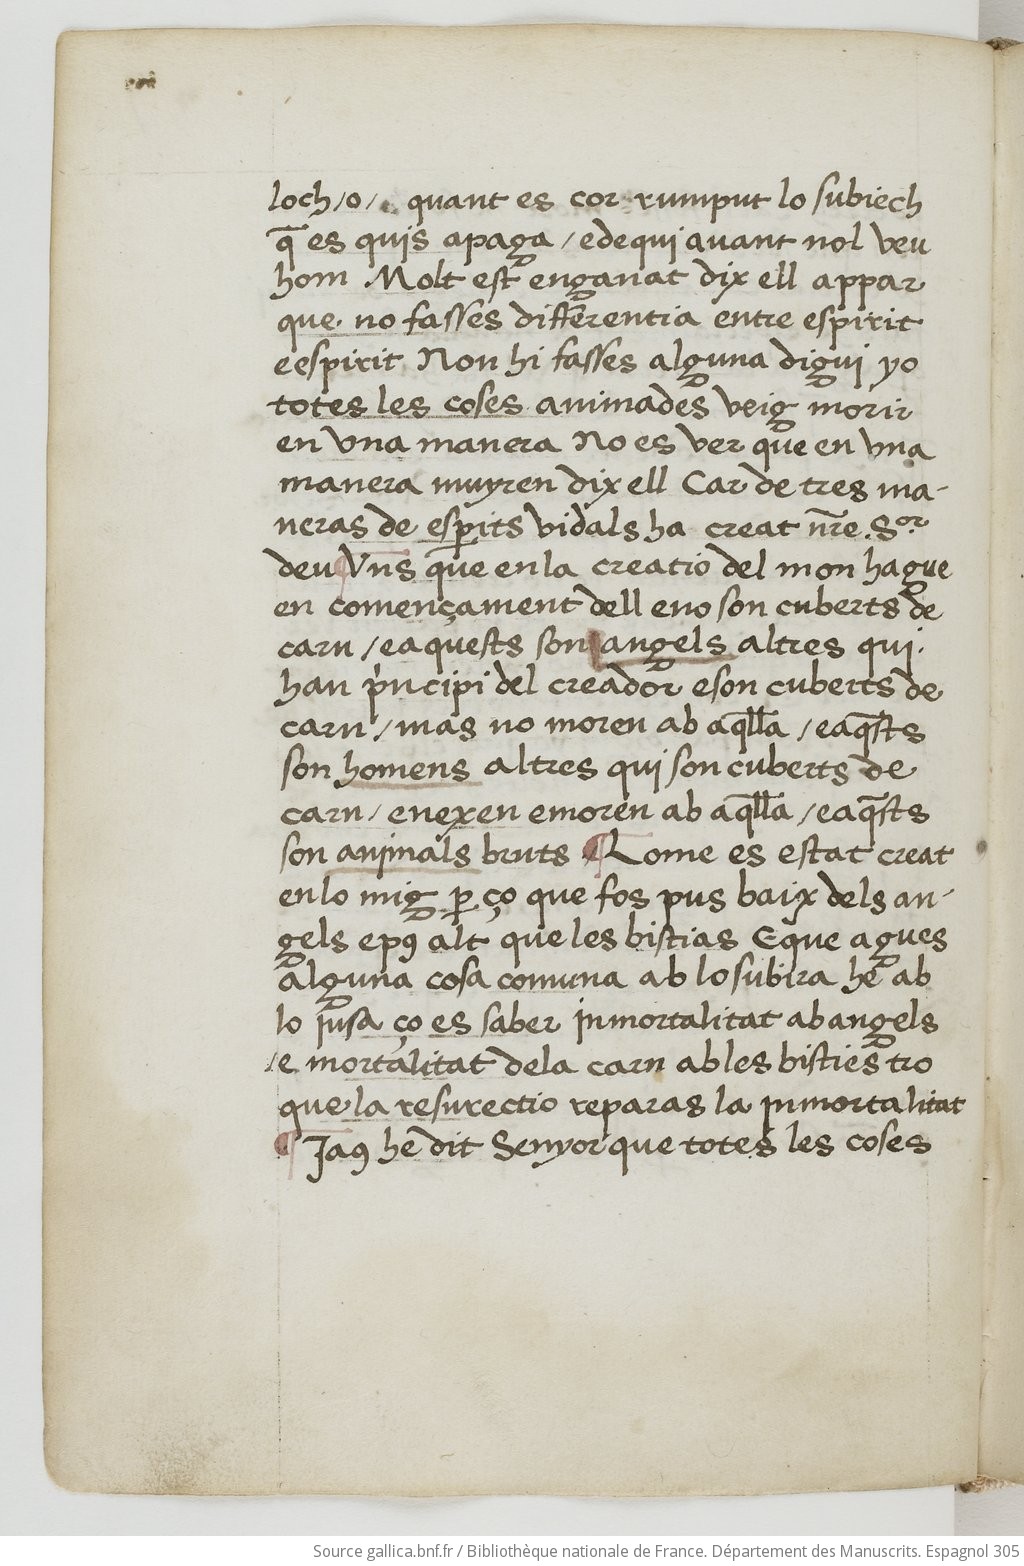 loch /o/ quant es cor rumput lo subiech
q̄ es quis apaga / e de qui auant nol veu
hom Molt est enganat dix ell appar
que no fasses differentia entre espirit
e espirit Non hi fasses alguna digui yo
totes les coses animades veig morir
en vna manera No es ver que en vna
manera muyren dix ell Car de tres ma-
neras de esperits vidals ha creat nr̄e Sor
deu ¶ Vns que en la creatio del mon hague
en començament dell e no son cuberts de
carn / e aquests son angels altres qui
han pͥncipi del creador e son cuberts de
carn / mas no moren ab aq̄lla / e aq̄sts
son homens altres qui son cuberts de
carn / e nexen e moren ab aq̄lla / e aq̄sts
son animals bruts ¶ Lome es estat creat
en lo mig ꝑ ço que fos pus baix dels an-
gels e pꝯ alt que les bistias E que agues
alguna cosa comuna ab lo subira he ab
lo jusa ço es saber inmortalitat ab angels
/ e mortalitat dela carn ab les bisties tro
que la resurectio reparas la inmortalitat
¶ Jaꝯ he dit Senyor que totes les coses
Source gallica.bnf.fr / Bibliothèque nationale de France. Département des Manuscrits. Espagnol 305